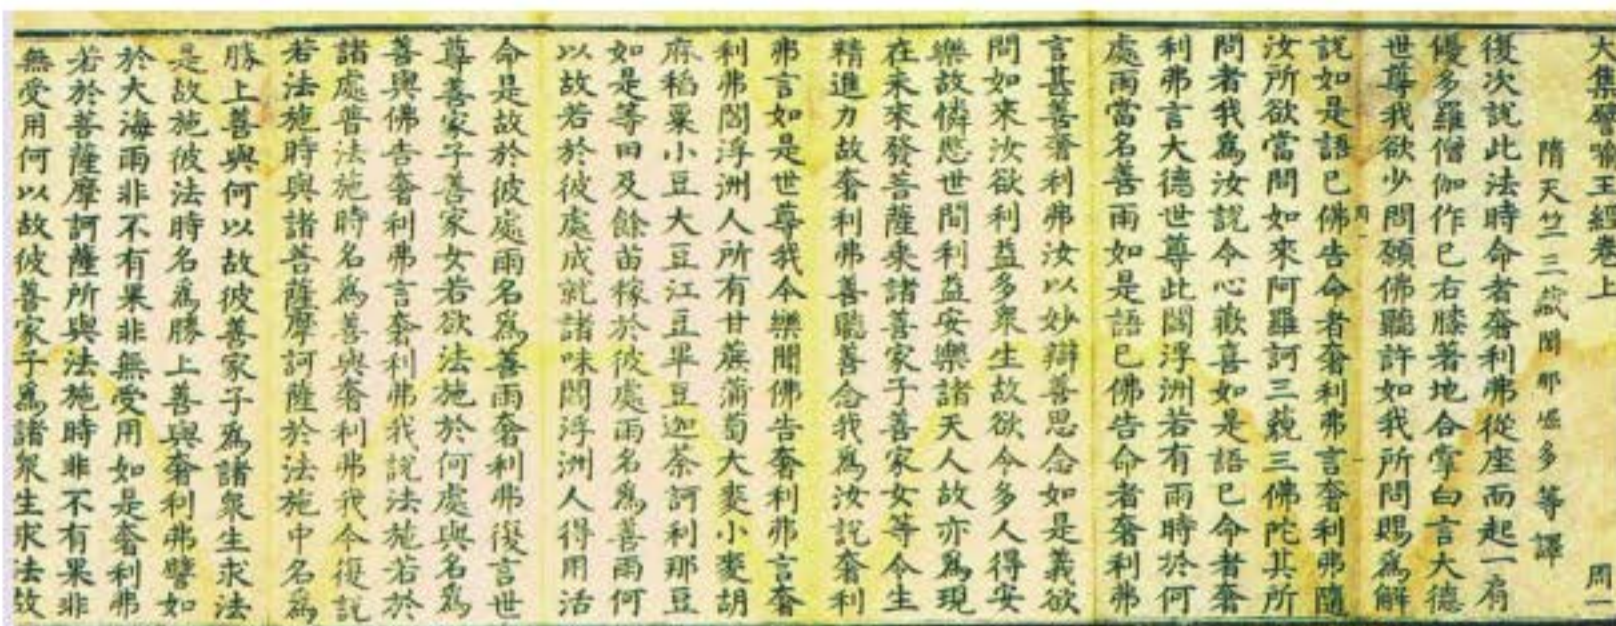 大集譬喻王經卷上 周一
隋天竺三藏闍那崛多等譯
復次說此法時命者奢利弗從座而起一肩
優多羅僧伽作已右膝著地合掌白言大德
世尊我欲少問願佛聽許如我所問賜為解
說如是語已佛告命者奢利弗言奢利弗隨
汝所欲當問如來阿羅訶三藐三佛陀其所
問者我為汝說令心歡喜如是語已命者奢
利弗言大德世尊此閻浮洲若有雨時於何
處雨當名善雨如是語已佛告命者奢利弗
言甚善奢利弗汝以妙辯善思念如是義欲
問如來汝欲利益多衆生故欲令多人得安
樂故憐愍世間利益安樂諸天人故亦為現
在未來發菩薩乘諸善家子善家女等令生
精進力故奢利弗善聽善念我為汝說奢利
弗言如是世尊我今樂聞佛告奢利弗言奢
利弗閻浮洲人所有甘蔗蒲萄大麥小麥胡
麻稻粟小豆大豆江豆畢豆迦荼訶利那豆
如是等田及餘苗稼於彼處雨名為善雨何
以故若於彼處成就諸味閻浮洲人得用活
命是故於彼處雨名為善雨奢利弗復言世
尊善家子善家女若欲法施於何處與名為
善與佛告奢利弗言奢利弗我說法施若於
諸處普法施時名為善與奢利弗我今復說
若法施時與諸菩薩摩訶薩於法施中名為
勝上善與何以故彼善家子為諸衆生求法
是故施彼法時名為勝上善與奢利弗譬如
於大海雨非不有果非無受用如是奢利弗
若於菩薩摩訶薩所與法施時非不有果非
無受用何以故彼善家子為諸衆生求法故